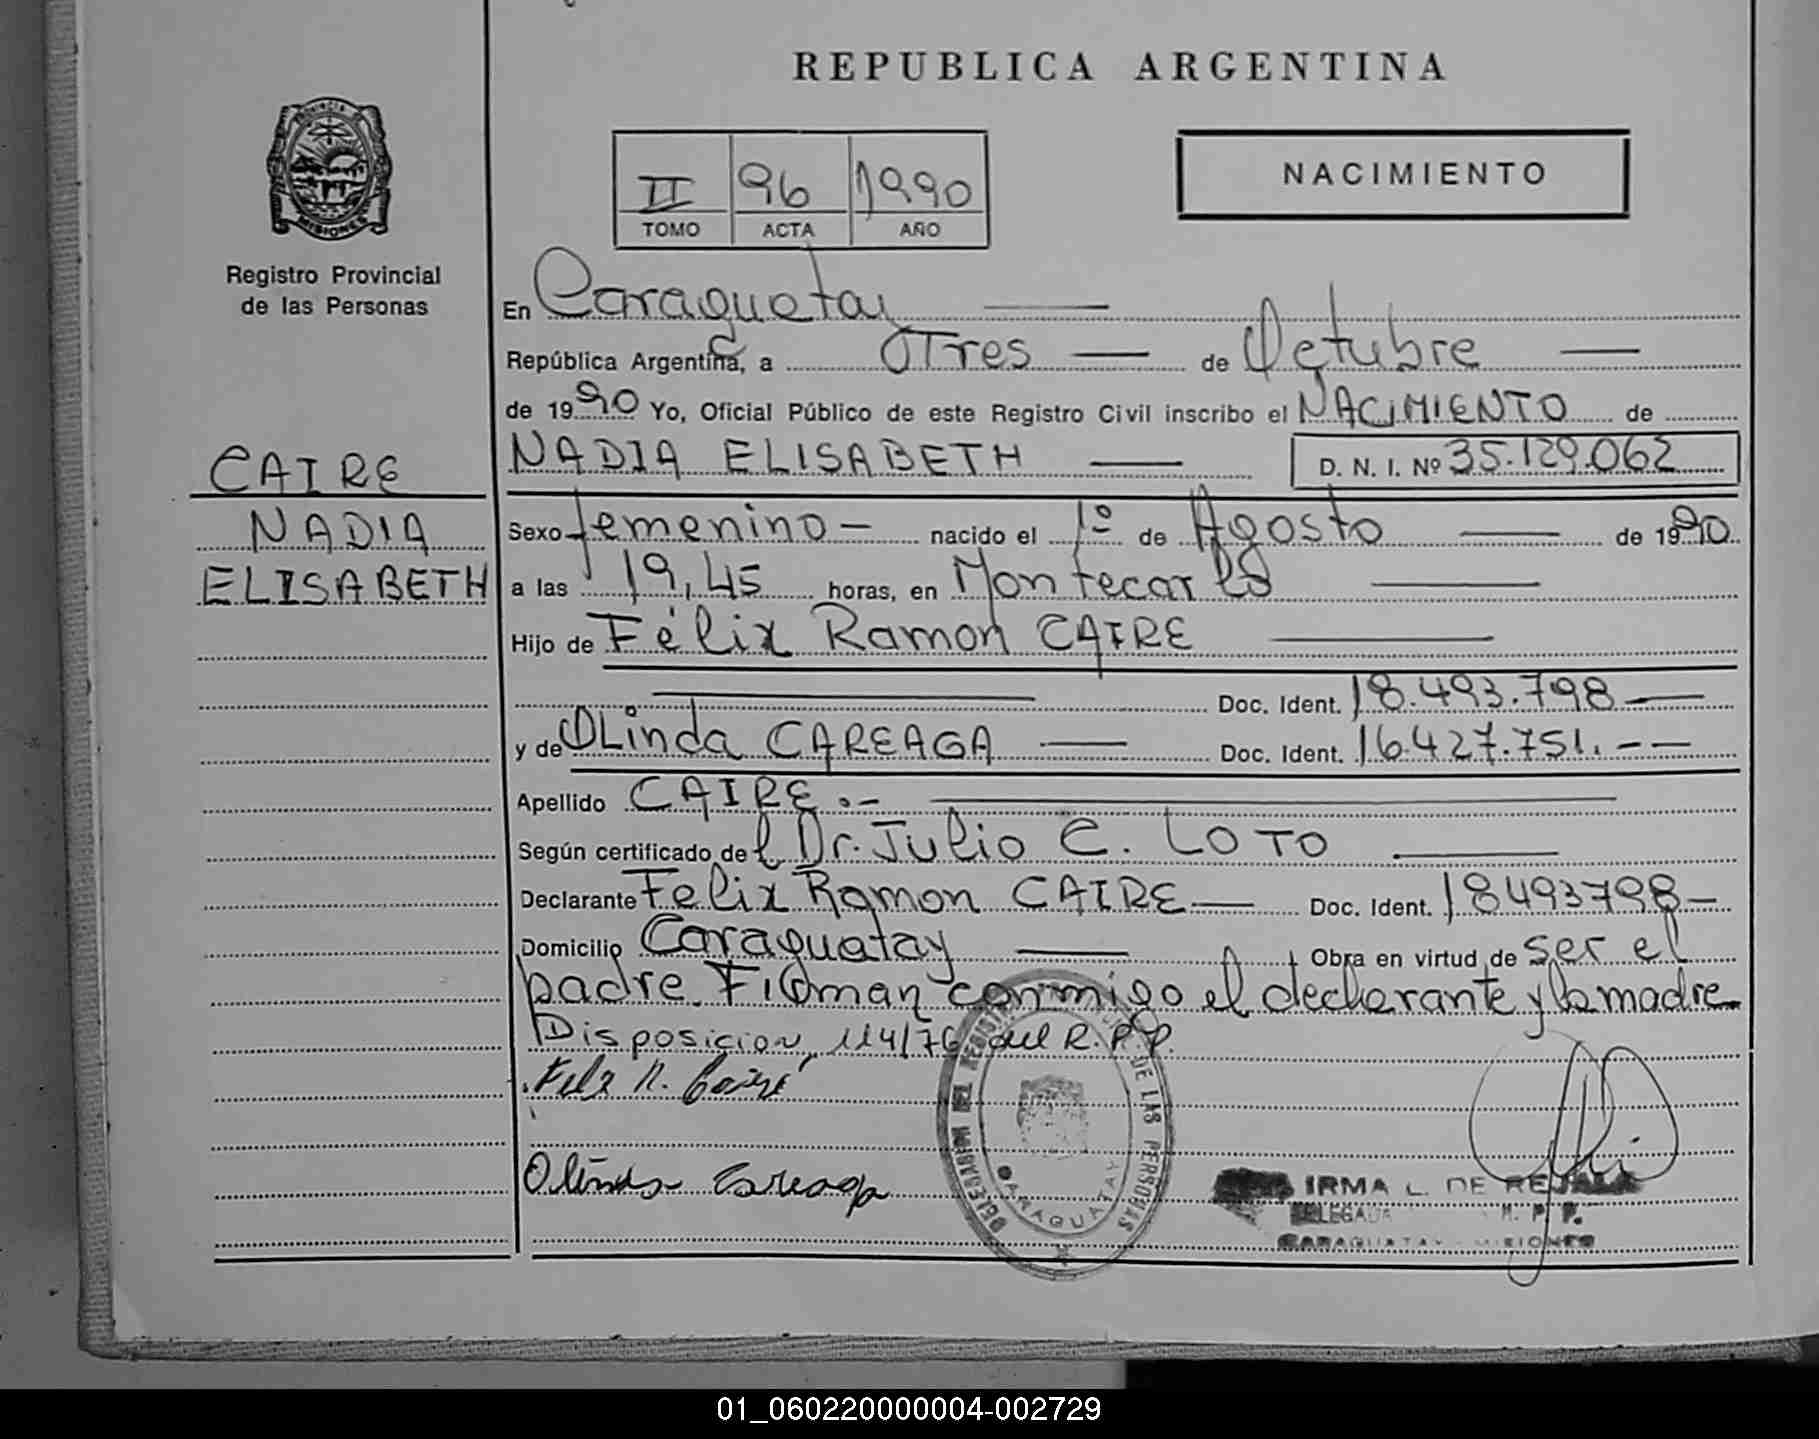 REPUBLICA ARGENTINA
PROVINCIA DE
MISIONES
Registro Provincial
de las Personas
II 96 1990
TOMO ACTA AÑO
NACIMIENTO
En Caraguatay
República Argentina, a Tres de Octubre
de 1990 Yo, Oficial Público de este Registro Civil inscribo el NACIMIENTO de
NADIA ELISABETH D. N. I. Nº 35.129.062
CAIRE
NADIA
ELISABETH
Sexo femenino - nacido el 1º de Agosto de 1990
a las 19,45 horas, en Montecarlo
Hijo de Félix Ramon CAIRE
Doc. Ident. 18.493.798
y de OLinda CAREAGA Doc. Ident. 16.427.751. --
Apellido CAIRE .-
Según certificado de l Dr. Julio C. LOTO
Declarante Felix Ramon CAIRE Doc. Ident. 18493798-
Domicilio Caraguatay Obra en virtud de ser el
padre. Firman conmigo el declarante y la madre
Disposicion, 114/76 del R.P.P.
Felix R. Caire
Olinda Careaga
DELEGACION DEL REGISTRO DE LAS PERSONAS
CARAGUATAY
IRMA L. DE REJALA
DELEGADA R. P. P.
CARAGUATAY - MISIONES
01_060220000004-002729